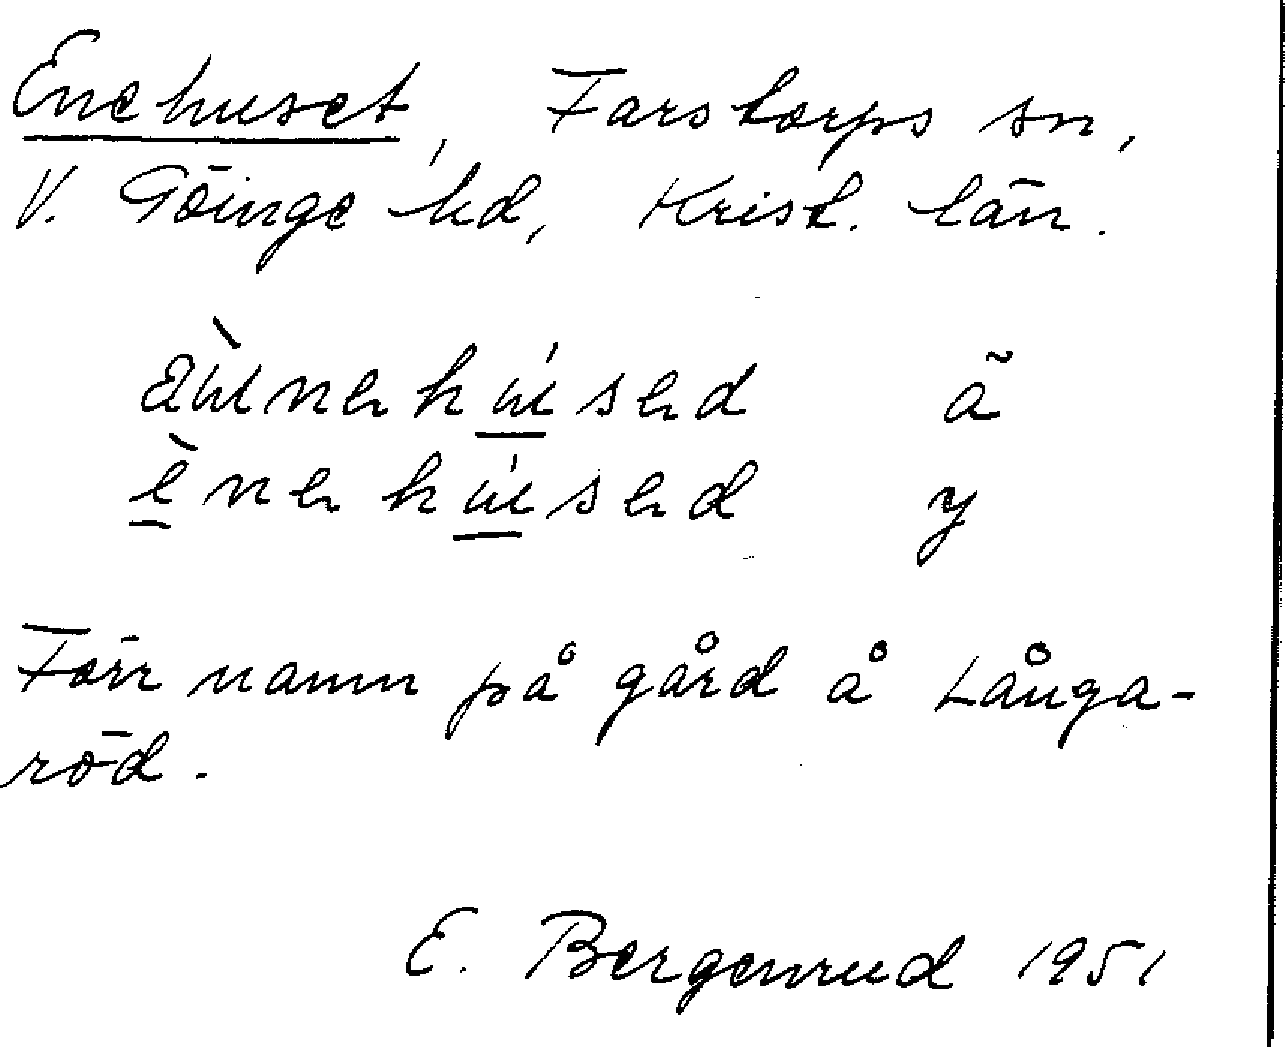 Enehuset, Farstorps sn,
V. Göinge hd, Krist. län.
ä
y
Förr namn på gård å Långa-
röd.
E. Bergenrud 1951